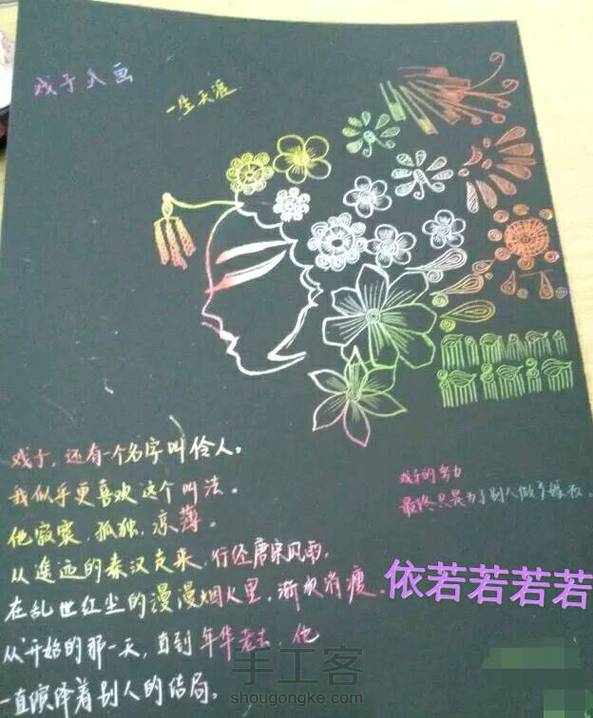 戏子入画
一生天涯
戏子，还有一个名字叫伶人。
我似乎更喜欢这个叫法。
他寂寞，孤独，凉薄。
从遥远的秦汉走来，行经唐宋风雨，
在乱世红尘的漫漫烟火里，渐次消瘦。
从开始的那一天，直到年华老去，他
一直演绎着别人的结局。
戏子的努力
最终只是为了别人做了嫁衣。
依若若若若
手工客
shougongke.com